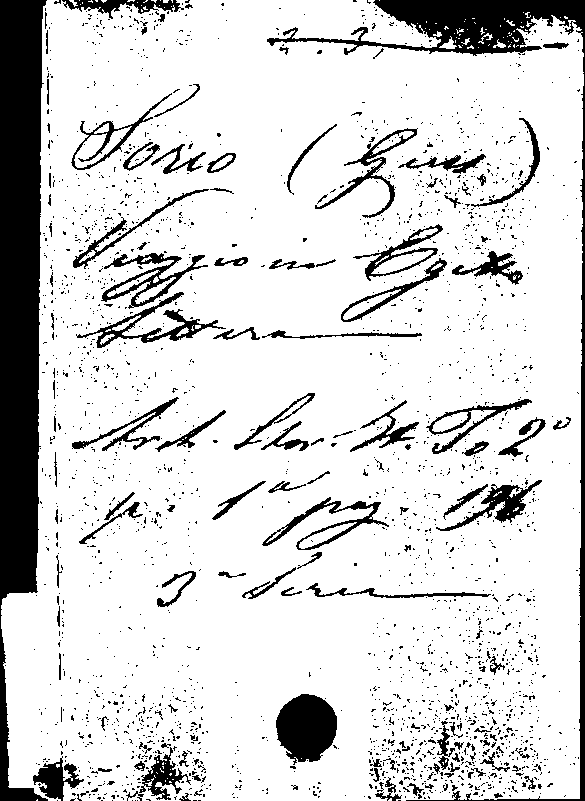 2. 3,
Sorio (Gius)
Viaggio in Egitto
Lettera
Arch. Stor. It. To 2º
p. 1ª pag 196
3ª Serie